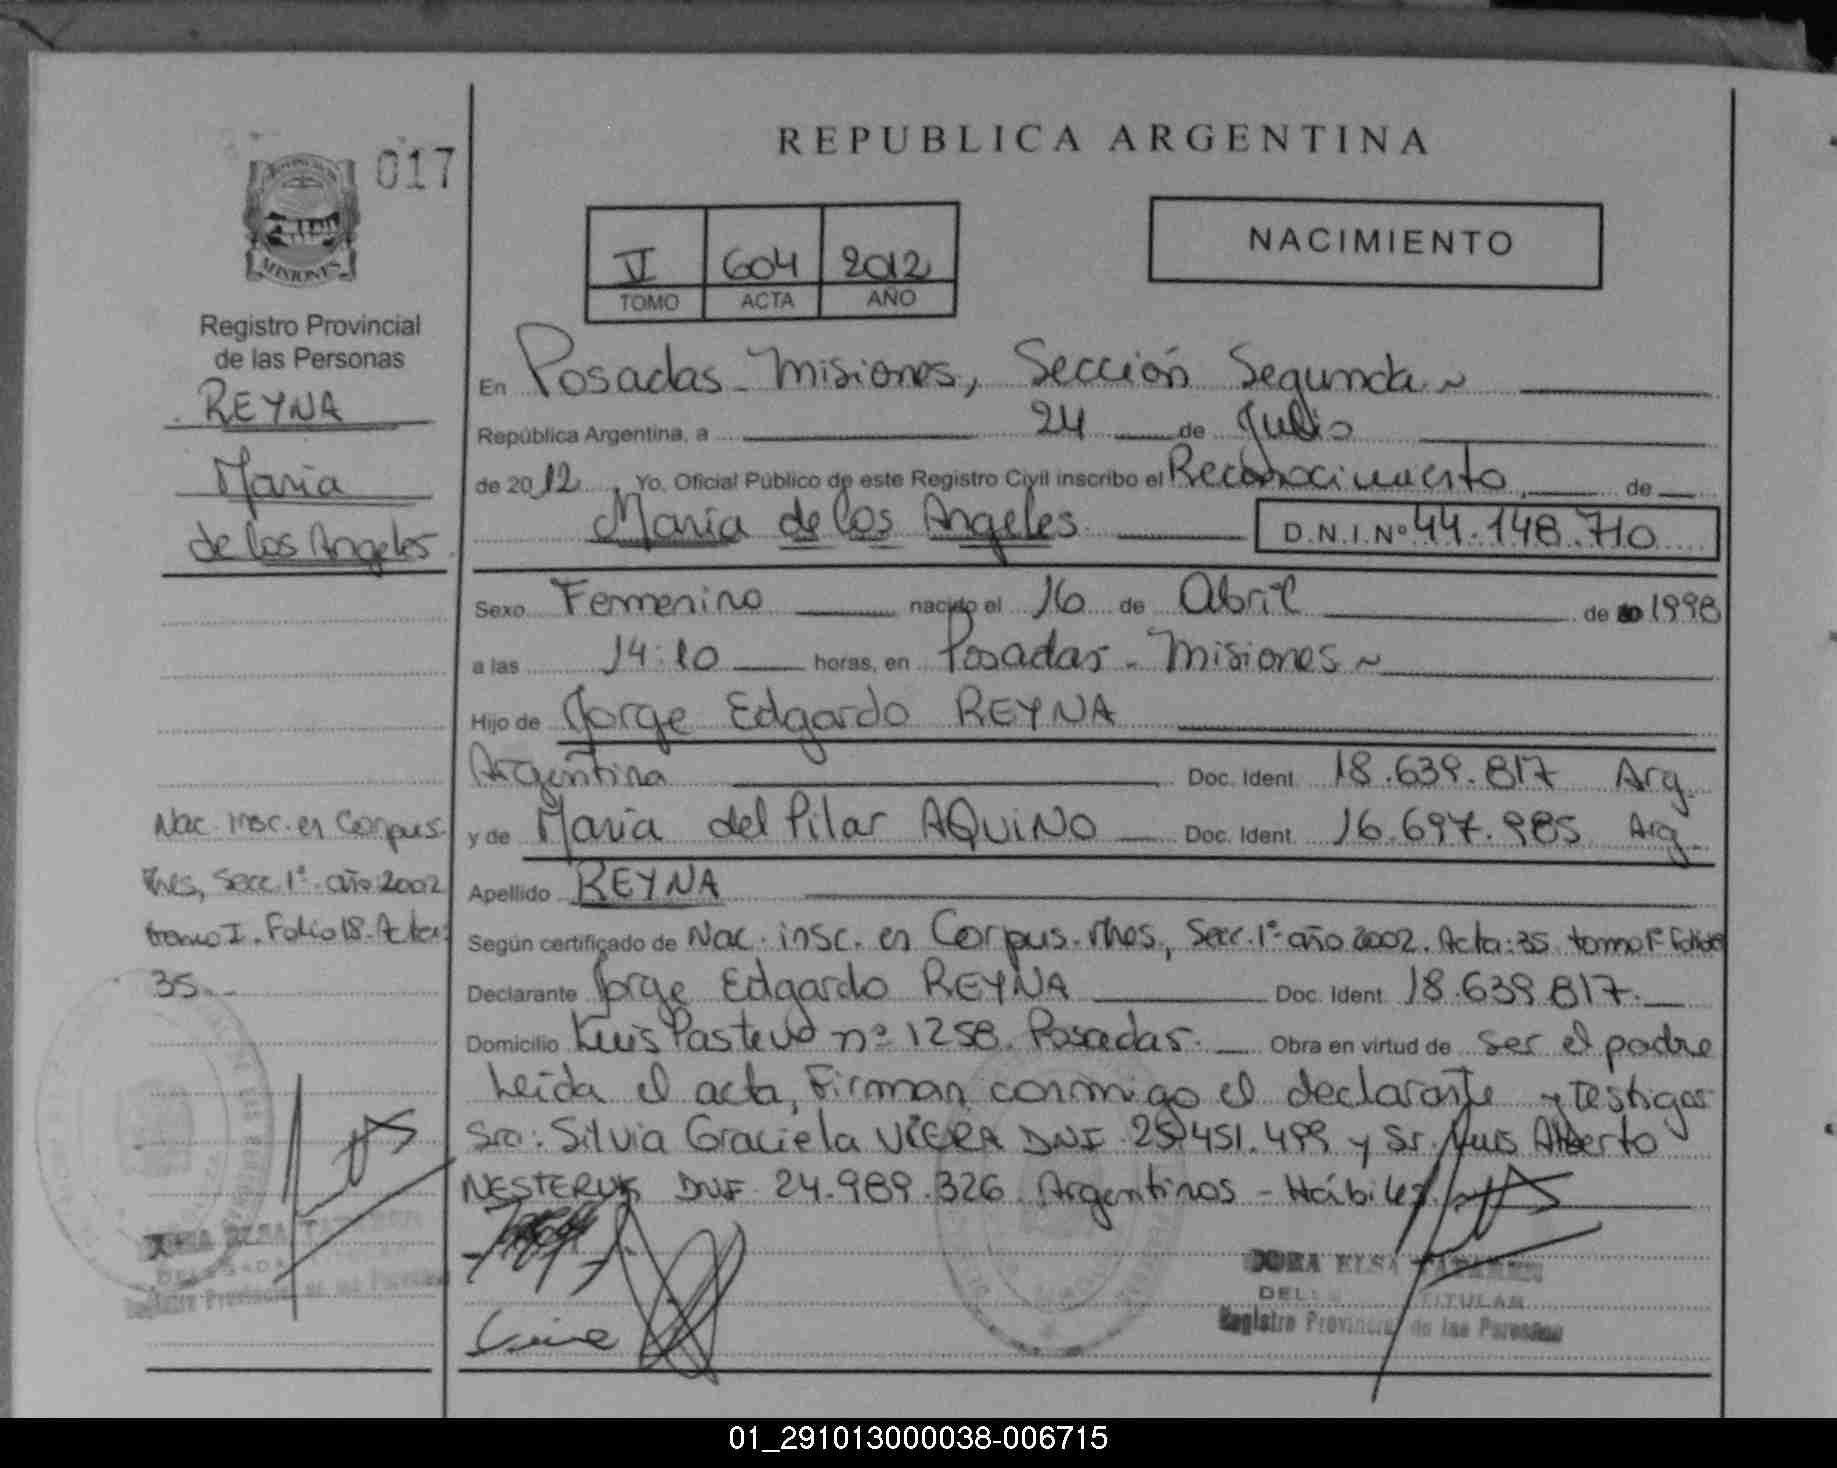 REPUBLICA ARGENTINA
017
NACIMIENTO
V 604 2012
TOMO ACTA AÑO
MISIONES
Registro Provincial
de las Personas
REYNA
Maria
de los Angeles
Nac. insc. en Corpus.
Mnes, Secc. 1ª. año 2002
tomo I. Folio 18. Acta:
35.
En Posadas - Misiones, Sección Segunda ~
República Argentina, a 24 de Julio
de 2012, Yo, Oficial Público de este Registro Civil inscribo el Reconocimiento, de
Maria de los Angeles D.N.I. Nº 44.148.710
Sexo Femenino nacido el 16 de Abril de 1998
a las 14:10 horas, en Posadas - Misiones ~
Hijo de Jorge Edgardo REYNA
Argentina Doc. Ident. 18.639.817 Arg.
y de Maria del Pilar AQUINO Doc. Ident. 16.697.985 Arg.
Apellido REYNA
Según certificado de Nac. insc. en Corpus. Mnes, Secc. 1ª año 2002. Acta: 35 tomo 1º
Declarante Jorge Edgardo REYNA Doc. Ident. 18.639.817.
Domicilio Luis Pasteur nº 1258. Posadas. Obra en virtud de ser el padre
Leída el acta, Firman conmigo el declarante y testigos
Sra: Silvia Graciela VIERA DNI 25.451.499 y Sr. Luis Alberto
NESTERUK DNI 24.989.326 Argentinos - Hábiles.
DORA ELSA
DEL TITULAR
Registro Provincial de las Personas
Registro Provincial de las Personas
01_291013000038-006715